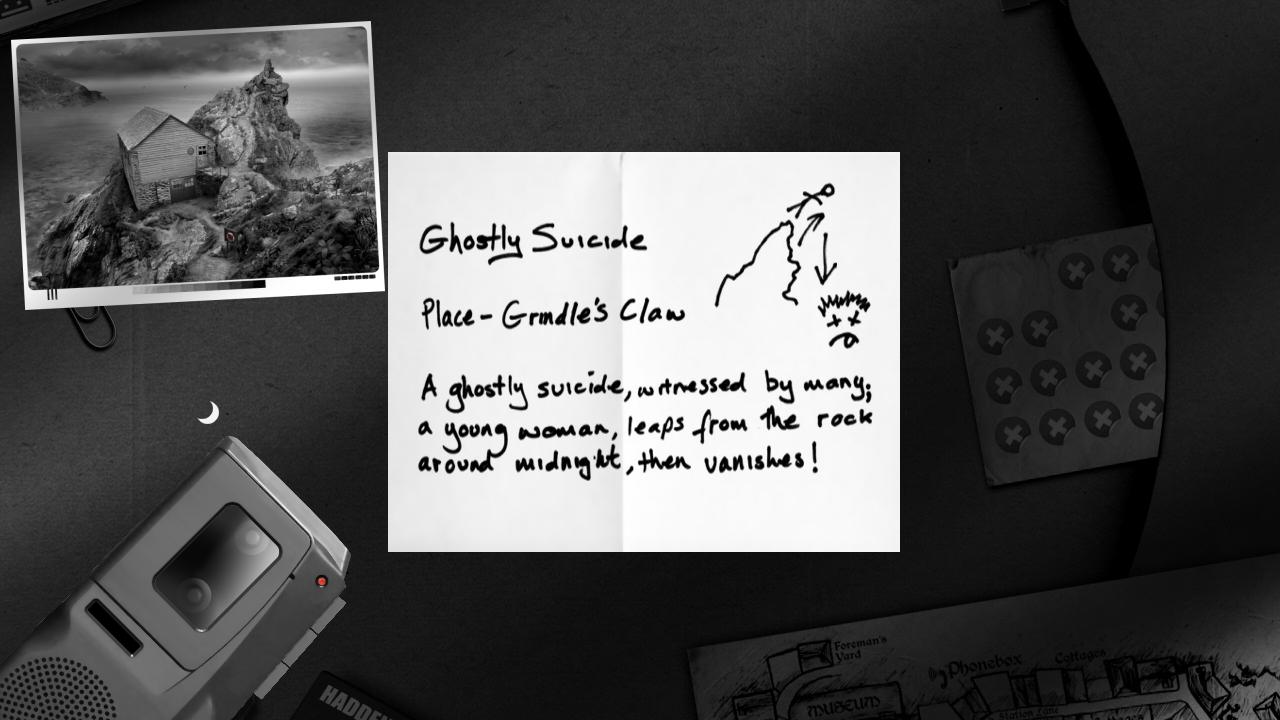 Ghostly Suicide
Place - Grindle's Claw
A ghostly suicide, witnessed by many;
a young woman, leaps from the rock
around midnight, then vanishes!
Foreman's
Yard
Phonebox
Cottages
MUSEUM
Station Lane